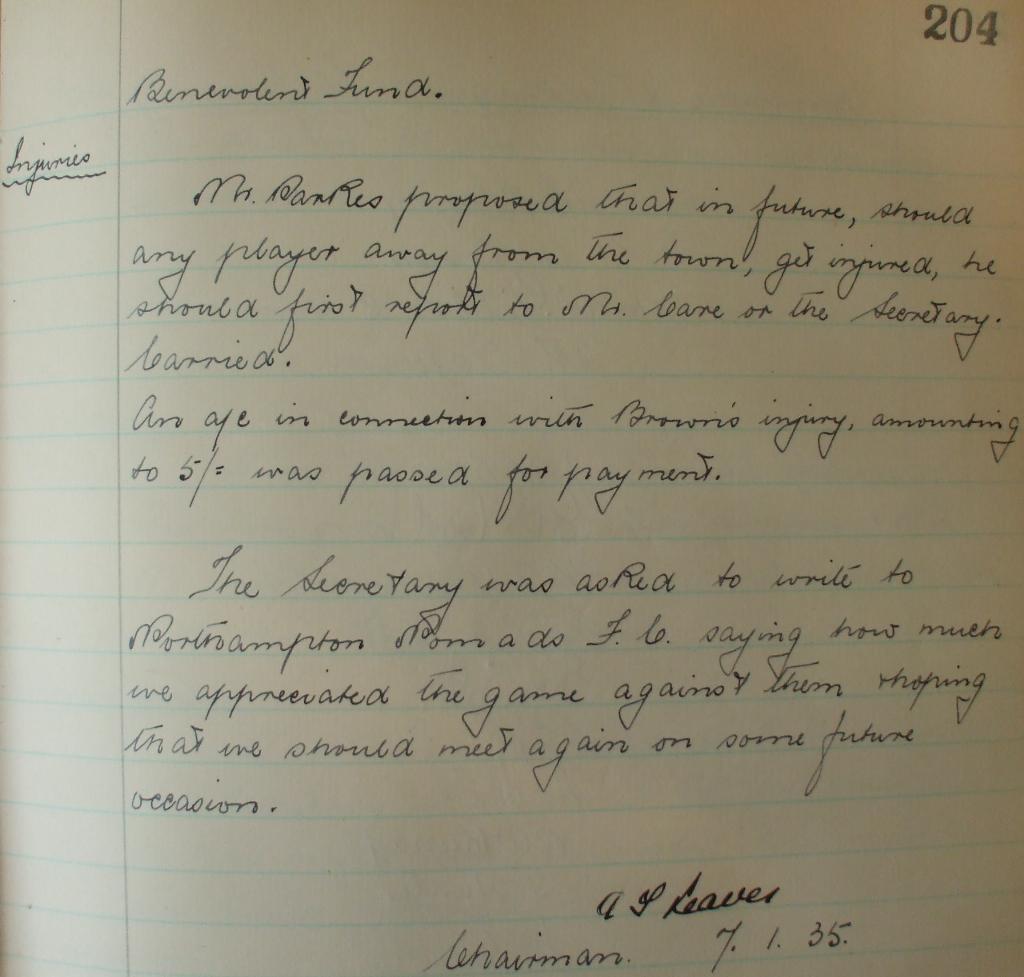 204
Benevolent Fund.
Injuries
Mr. Parkes proposed that in future, should
any player away from the town, get injured, he
should first report to Mr. Care or the Secretary.
Carried.
An a/c in connection with Brown's injury, amounting
to 5/= was passed for payment.
The Secretary was asked to write to
Northampton Nomads F.C. saying how much
we appreciated the game against them + hoping
that we should meet again on some future
occasion.
A S Leaver
Chairman. 7. 1. 35.